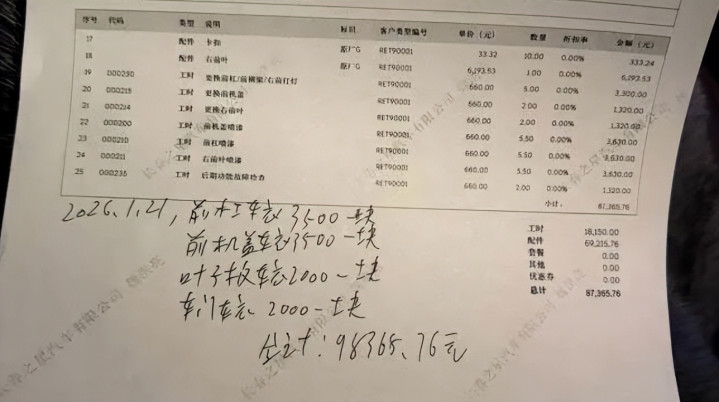 序号 代码 类型 说明 标识 客户类型编号 单价(元) 数量 折扣率 金额(元)
17 配件 卡扣 原厂G RET90001 33.32 10.00 0.00% 333.24
18 配件 右前叶 原厂G RET90001 6,293.53 1.00 0.00% 6,293.53
19 000250 工时 更换前杠/前横梁/右前灯 RET90001 660.00 5.00 0.00% 3,300.00
20 000215 工时 更换前机盖 RET90001 660.00 2.00 0.00% 1,320.00
21 000214 工时 更换右前叶 RET90001 660.00 2.00 0.00% 1,320.00
22 000200 工时 前机盖喷漆 RET90001 660.00 5.50 0.00% 3,630.00
23 000210 工时 前杠喷漆 RET90001 660.00 5.50 0.00% 3,630.00
24 000211 工时 右前叶喷漆 RET90001 660.00 5.50 0.00% 3,630.00
25 000235 工时 后期功能故障检查 RET90001 660.00 2.00 0.00% 1,320.00
小计: 87,365.76
工时 18,150.00
配件 69,215.76
套餐 0.00
其他 0.00
优惠券 0.00
总计 87,365.76
2026.1.21,前杠车衣3500一块
前机盖车衣3500一块
叶子板车衣2000一块
车门车衣2000一块
总计:98365.76元